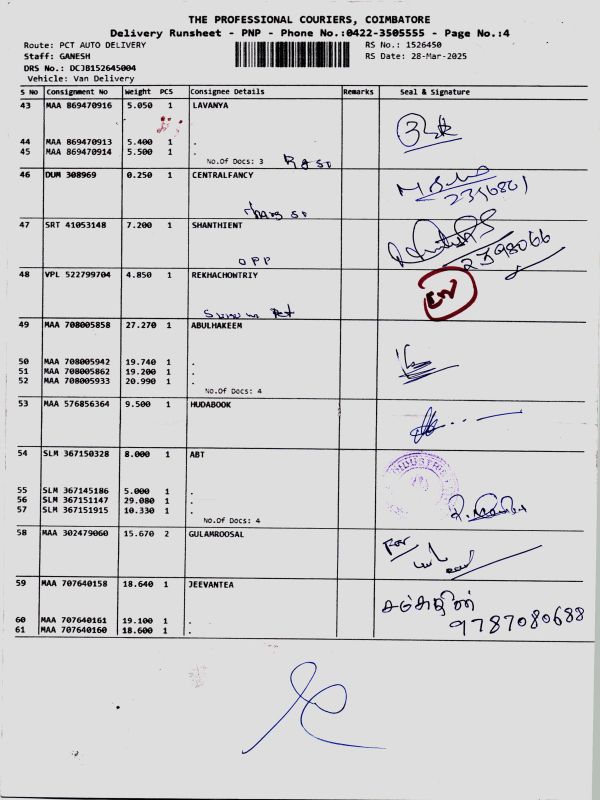 THE PROFESSIONAL COURIERS, COIMBATORE
Delivery Runsheet - PNP - Phone No.:0422-3505555 - Page No.:4
Route: PCT AUTO DELIVERY RS No.: 1526450
Staff: GANESH RS Date: 28-Mar-2025
DRS No.: DCJB152645004
Vehicle: Van Delivery
S No Consignment No Weight PCS Consignee Details Remarks Seal & Signature
43 MAA 869470916 5.050 1 LAVANYA
44 MAA 869470913 5.400 1 .
45 MAA 869470914 5.500 1 .
No.Of Docs: 3
46 DUM 308969 0.250 1 CENTRALFANCY
2356801
47 SRT 41053148 7.200 1 SHANTHIENT
OPP
2398066
48 VPL 522799704 4.850 1 REKHACHOWTRIY
49 MAA 708005858 27.270 1 ABULHAKEEM
50 MAA 708005942 19.740 1 .
51 MAA 708005862 19.200 1 .
52 MAA 708005933 20.990 1 .
No.Of Docs: 4
53 MAA 576856364 9.500 1 HUDABOOK
54 SLM 367150328 8.000 1 ABT
55 SLM 367145186 5.000 1 .
56 SLM 367151147 29.080 1 .
57 SLM 367151915 10.330 1 .
No.Of Docs: 4
58 MAA 302479060 15.670 2 GULAMROOSAL
For
59 MAA 707640158 18.640 1 JEEVANTEA
9787080688
60 MAA 707640161 19.100 1 .
61 MAA 707640160 18.600 1 .